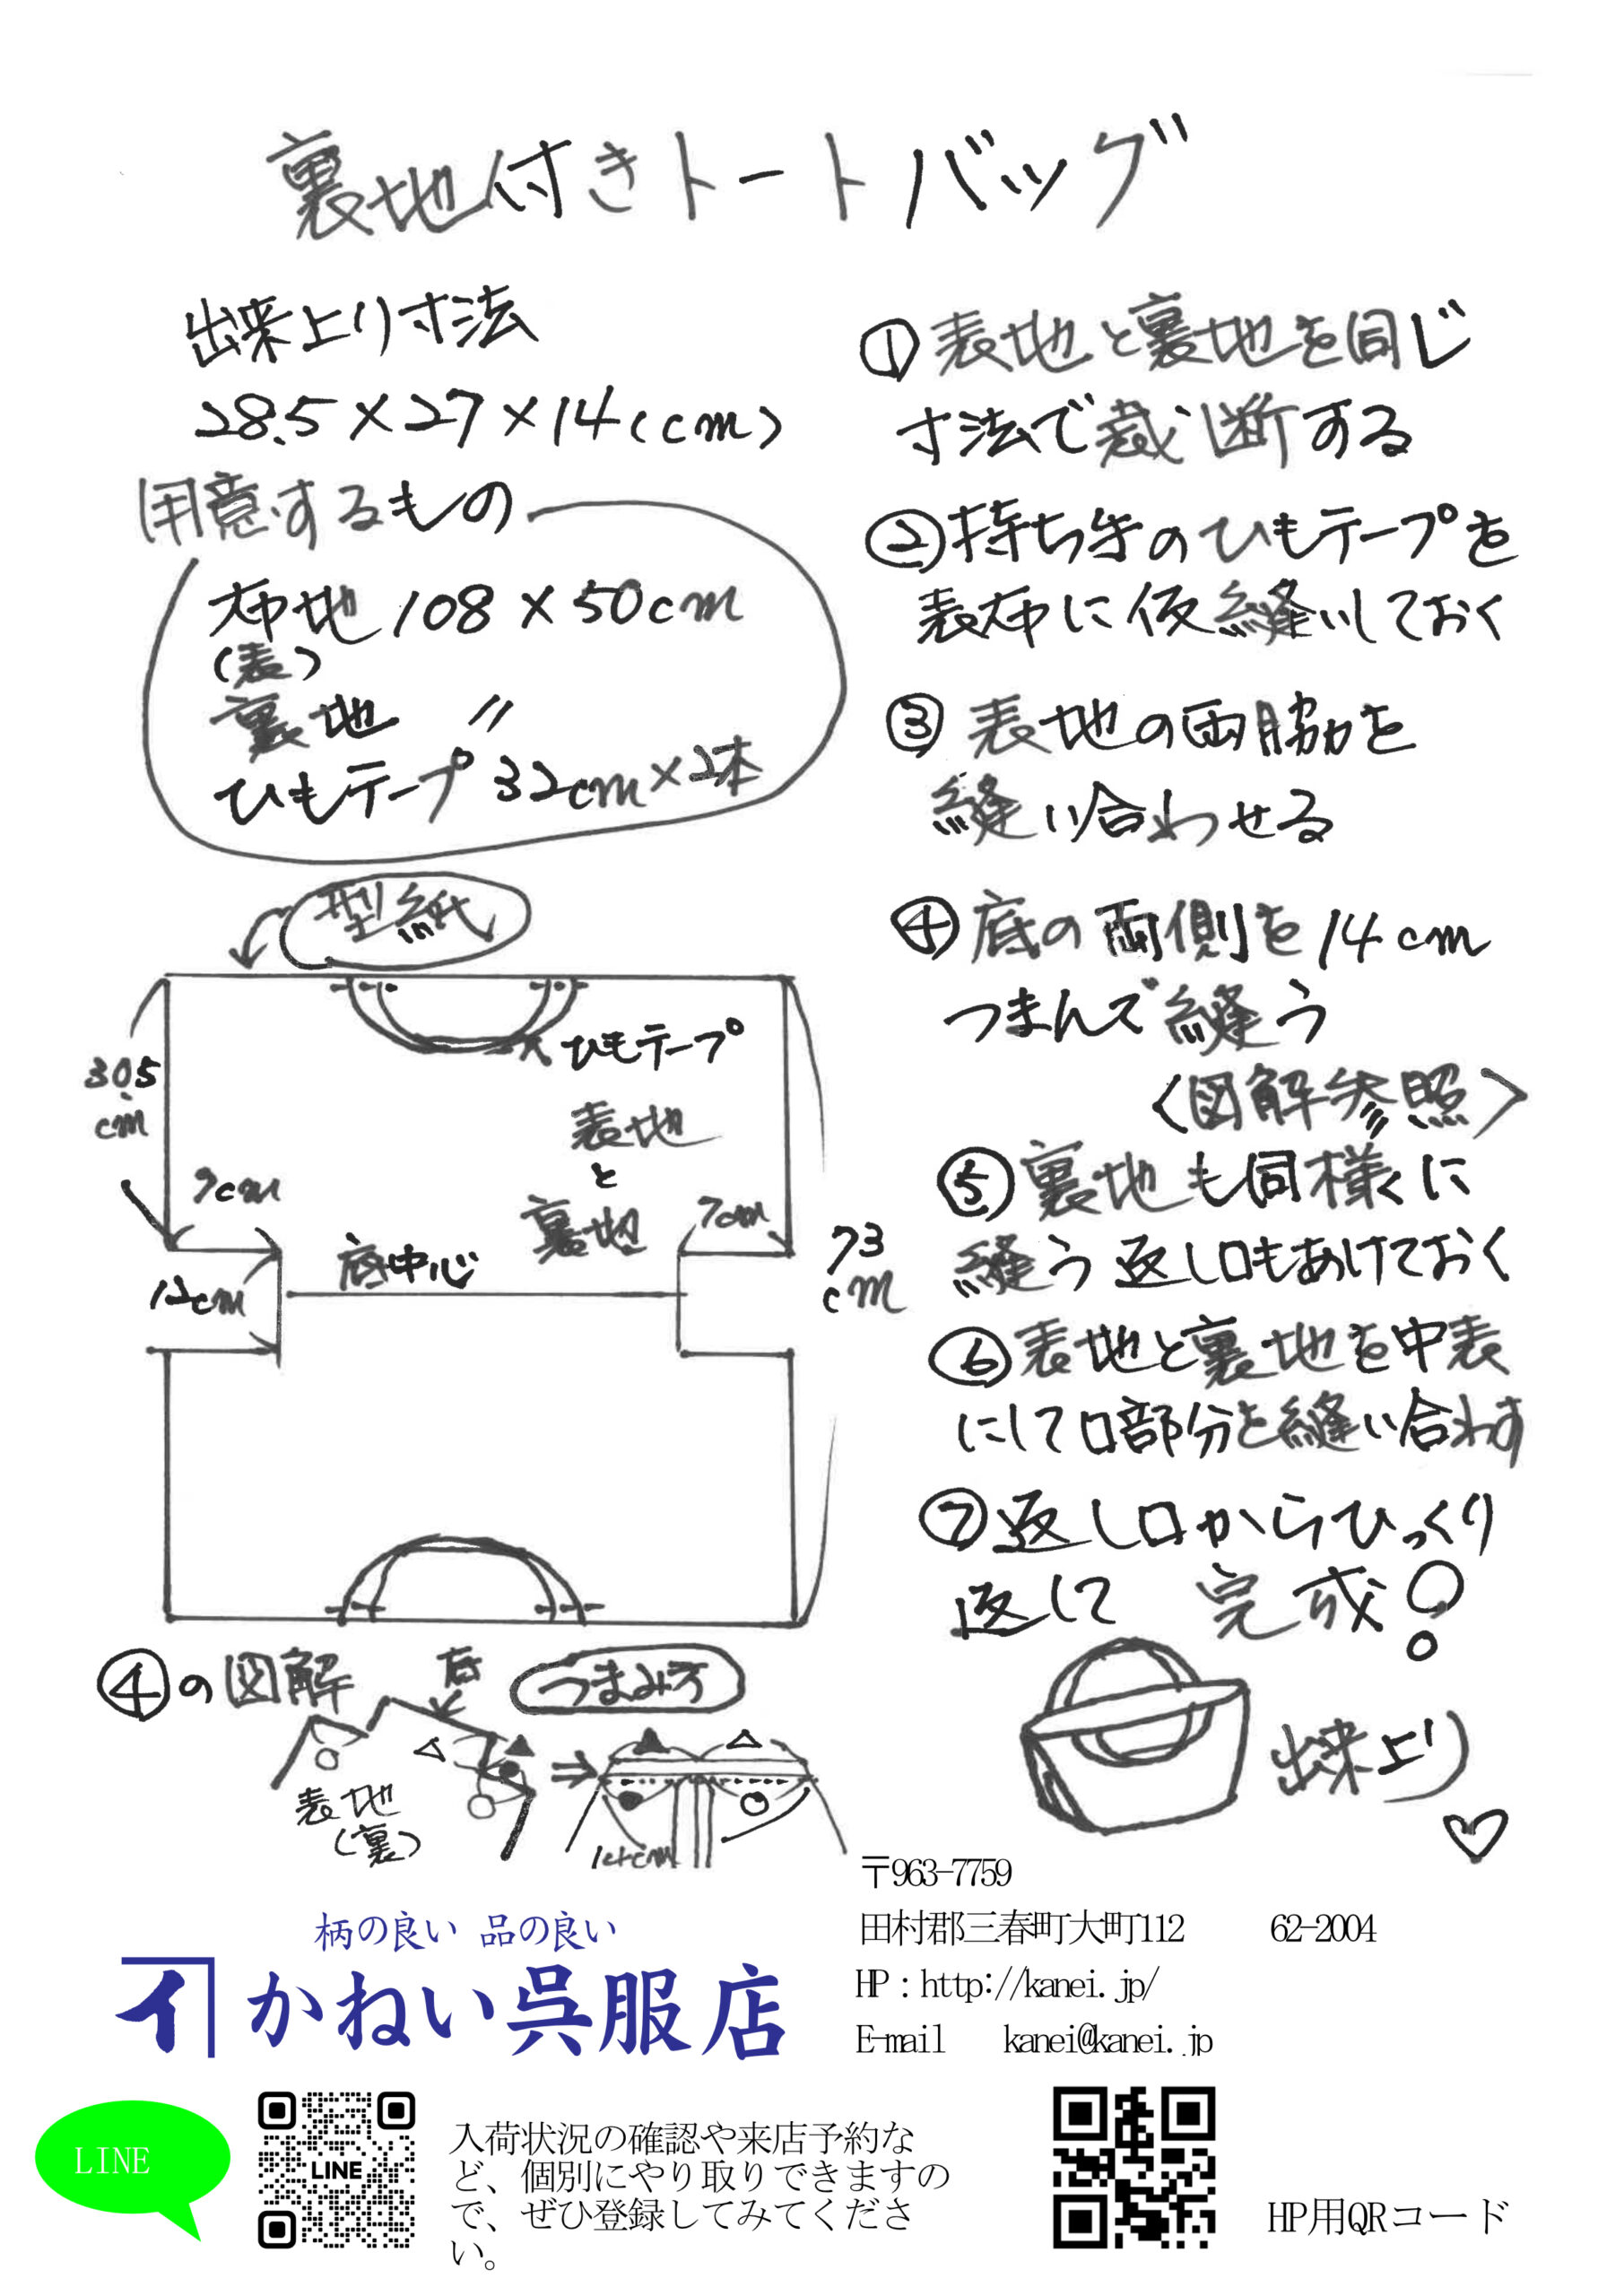 裏地付きトートバッグ
出来上り寸法
28.5×27×14(cm)
用意するもの
布地 108×50cm
(表)
裏地 〃
ひもテープ 32cm×2本
型紙
ひもテープ
30.5
cm
表地
と
裏地
7cm
7cm
底中心
12cm
73
cm
④の図解
底
つまみ方
△
▲
▲
△
○
●
○
●
○
表地
(裏)
14cm
①表地と裏地を同じ
寸法で裁断する
②持ち手のひもテープを
表布に仮縫いしておく
③表地の両脇を
縫い合わせる
④底の両側を14cm
つまんで縫う
〈図解参照〉
⑤裏地も同様に
縫う 返し口もあけておく
⑥表地と裏地を中表
にして口部分を縫い合わす
⑦返し口からひっくり
返して 完成!
出来上り
♡
〒963-7759
田村郡三春町大町112 62-2004
HP：http://kanei.jp/
E-mail kanei@kanei.jp
柄の良い 品の良い
イ かねい呉服店
LINE
LINE
入荷状況の確認や来店予約な
ど、個別にやり取りできますの
で、ぜひ登録してみてくださ
い。
HP用QRコード